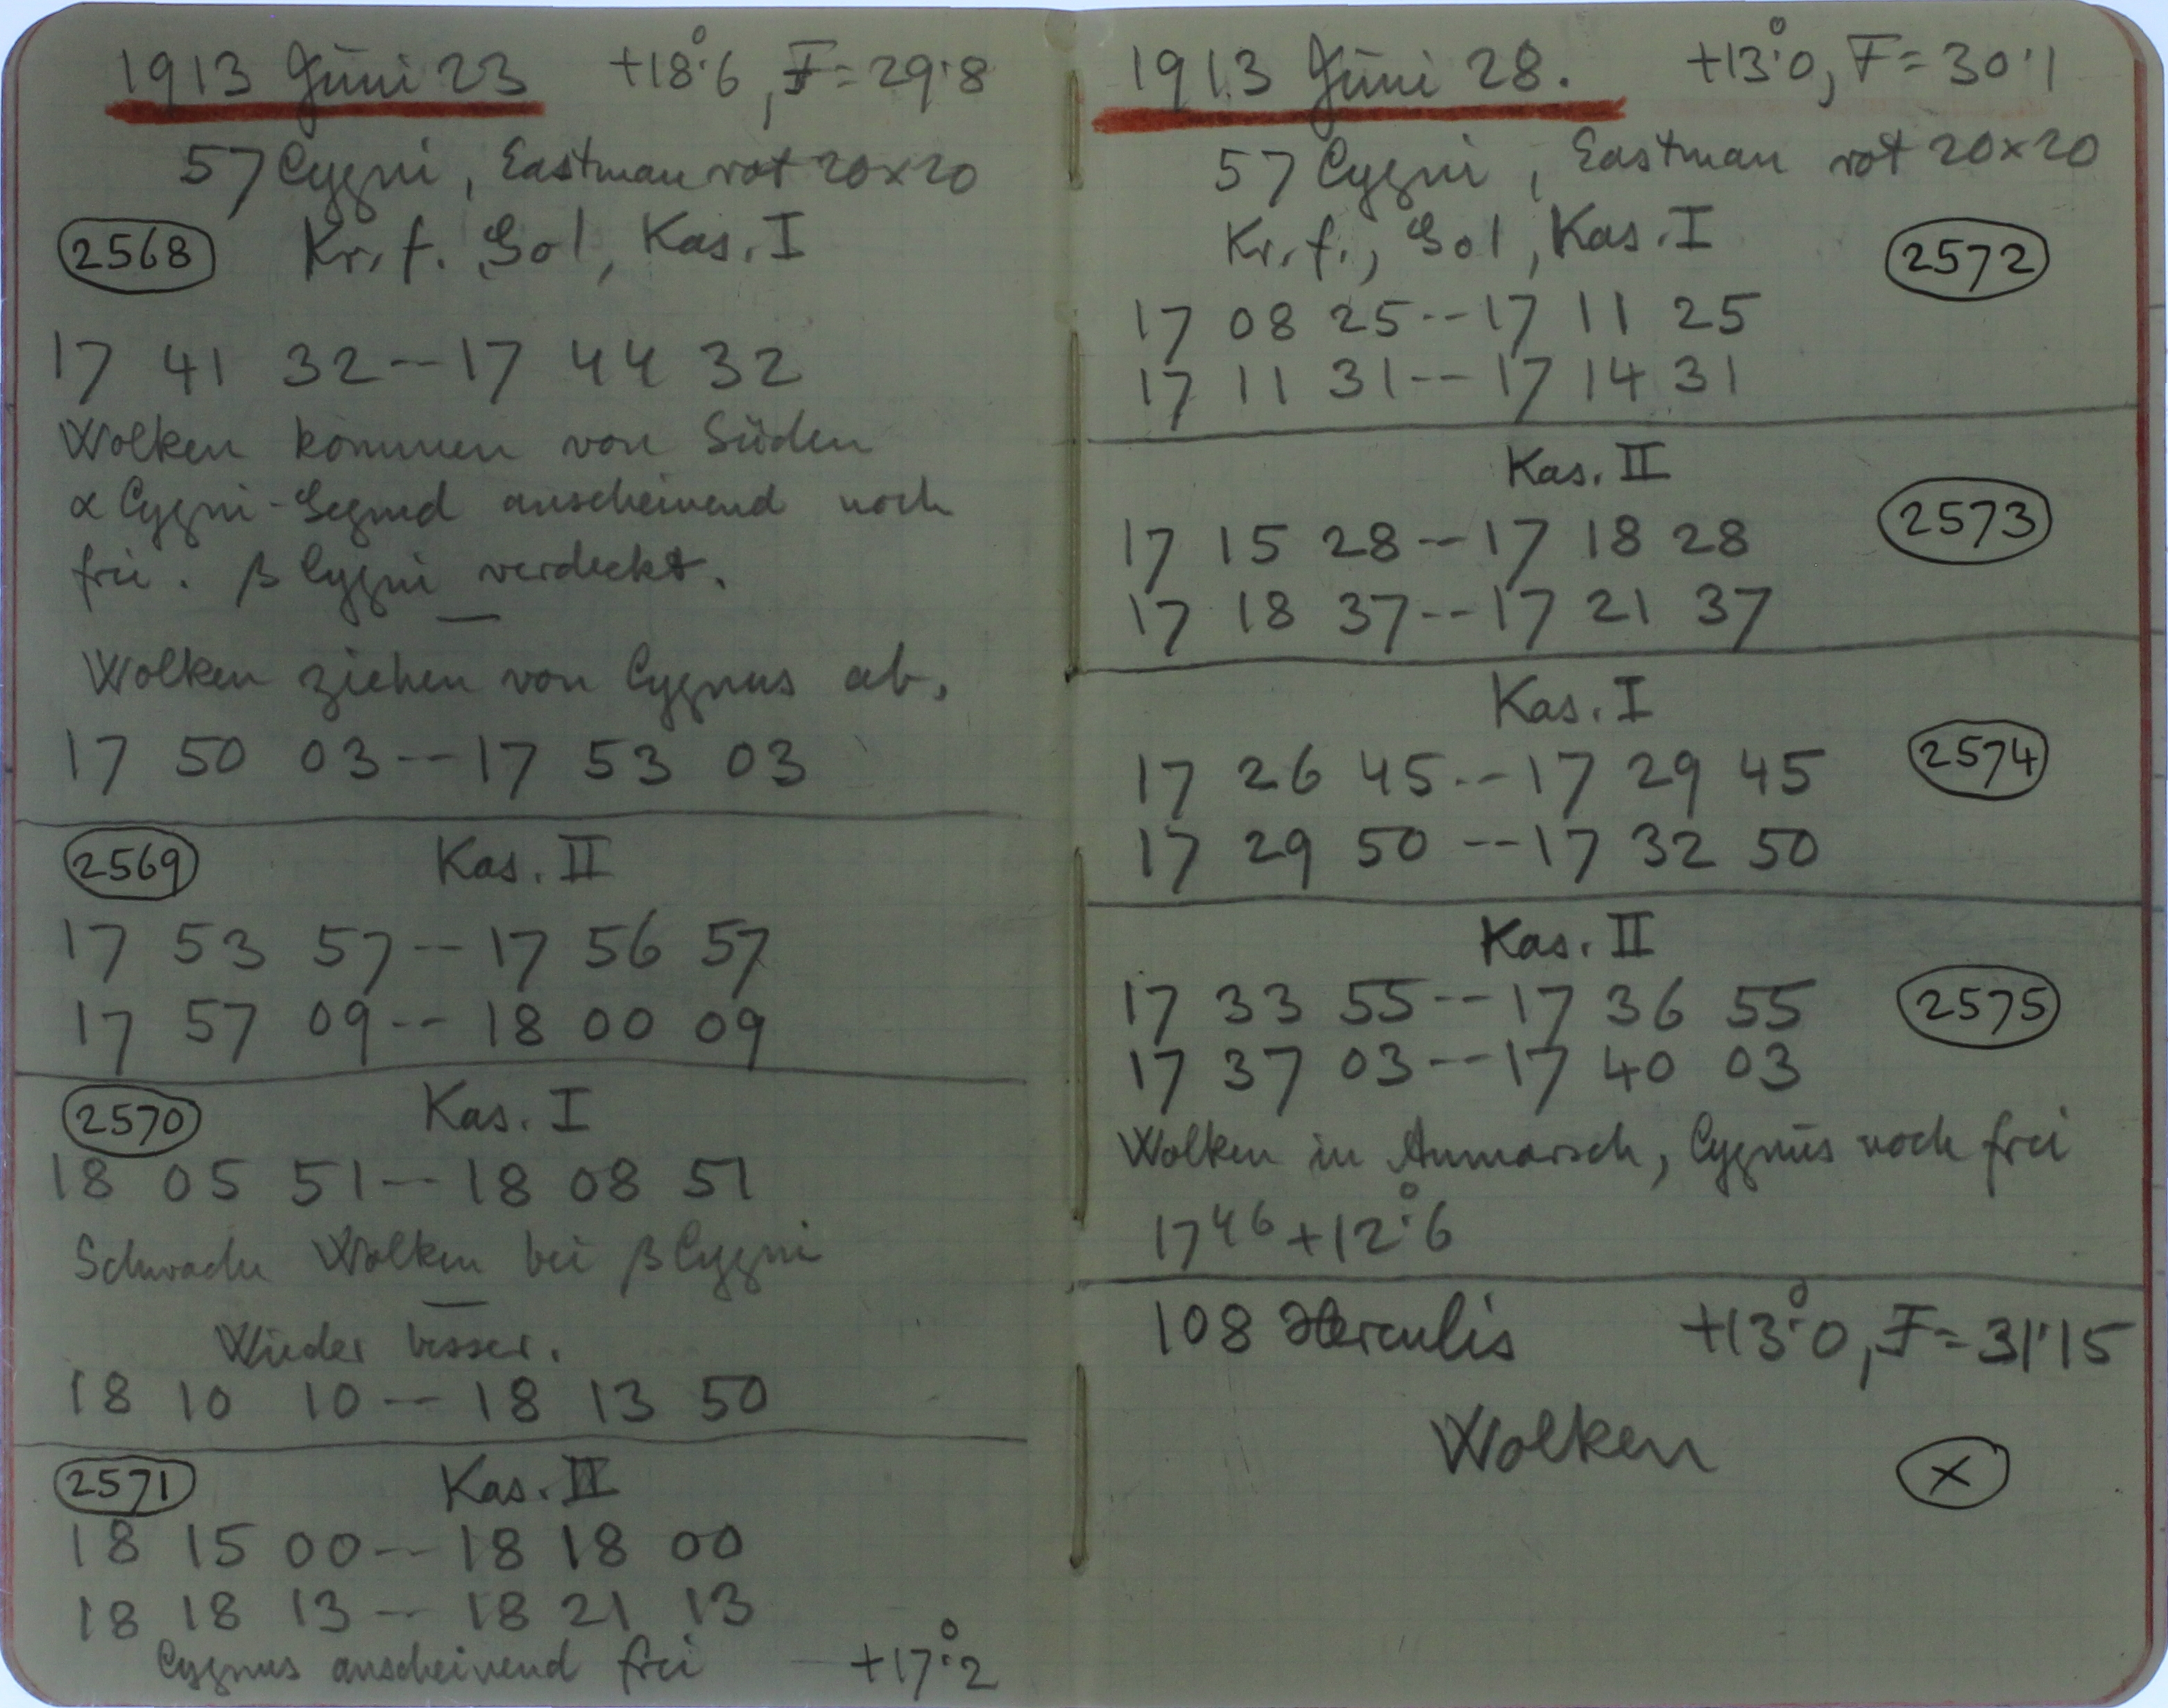 1913 Juni 23 +18°.6, F=29.8
57 Cygni, Eastman rot 20×20
2568 Kr. f. Sol, Kas. I
17 41 32 -- 17 44 32
Wolken kommen von Süden
α Cygni-Gegend anscheinend noch
frei. β Cygni verdeckt.
—
Wolken ziehen von Cygnus ab.
17 50 03 -- 17 53 03
2569 Kas. II
17 53 57 -- 17 56 57
17 57 09 -- 18 00 09
2570 Kas. I
18 05 51 -- 18 08 51
Schwache Wolken bei β Cygni
—
Wieder besser.
18 10 10 -- 18 13 50
2571 Kas. II
18 15 00 -- 18 18 00
18 18 13 -- 18 21 13
Cygnus anscheinend frei +17°.2
1913 Juni 28. +13°.0, F=30.1
57 Cygni, Eastman rot 20×20
Kr. f., Sol, Kas. I 2572
17 08 25 -- 17 11 25
17 11 31 -- 17 14 31
Kas. II
17 15 28 -- 17 18 28 2573
17 18 37 -- 17 21 37
Kas. I
17 26 45 -- 17 29 45 2574
17 29 50 -- 17 32 50
Kas. II
17 33 55 -- 17 36 55 2575
17 37 03 -- 17 40 03
Wolken in Anmarsch, Cygnus noch frei
17⁴⁶ +12°.6
108 Herculis +13°.0, F=31.15
Wolken ×